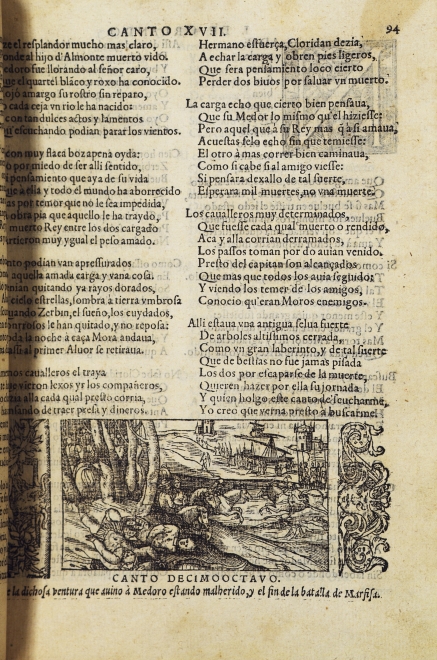 CANTO XVII.
94
el resplandor mucho mas claro,
onde al hijo d'Almonte muerto vido.
edoro fue llorando al señor caro,
que el quartel blãco y roxo ha conocido.
ojò amargo su rostro sin reparo,
cada ceja vn rio le ha nacido:
con tan dulces actos y lamentos
escuchando podian parar los vientos.
con muy flaca boz apena oyda:
por miedo de ser alli sentido,
pensamiento que aya de su vida
que a ella y todo el mundo ha aborrecido
as por temor que no le sea impedida,
obra pia que aquello le ha traydo,
muerto Rey entre los dos cargado
artieron muy ygual el peso amado.
podian van apressurados
aquella amada carga y vana cosa.
enian quitando ya rayos dorados,
cielo estrellas, sombra à tierra vmbrosa
quando Zerbin, el sueño, los cuydados,
le han quitado, y no reposa:
da la noche à caça Mora andaua,
al primer Aluor se retiraua.
caualleros el traya
vieron lexos yr los compañeros,
alla qual presto corria,
nsando de traer presa y dineros.
Hermano esfuerça, Cloridan dezia,
A echar la carga y obren pies ligeros,
Que sera pensamiento loco cierto
Perder dos biuos por saluar vn muerto.
La carga echo que cierto bien pensaua,
Que su Medor lo mismo qu'el hiziesse:
Pero aquel que à su Rey mas q̃ à si amaua,
Acuestasselo echo sin que temiesse:
El otro à mas correr bien caminaua,
Como si cabe si al amigo viesse:
Si pensara dexallo de tal suerte,
Esperara mil muertes, no vna muerte.
Los caualleros muy determinados,
Que fuesse cada qual muerto o rendido,
Aca y alla corrian derramados,
Los passos toman por do auian venido.
Presto del capitan son alcançados
Que mas que todos los auia seguido:
Y viendo los temer de los amigos,
Conocio qu'eran Moros enemigos.
Alli estaua vna antigua selua fuerte
De arboles altissimos cerrada
Como vn gran laberinto, y de tal suerte
Que de bestias no fue jamas pisada
Los dos por escaparse de la muerte,
Quieren hazer por ella su jornada
Y quien holgo este canto d'escucharme,
Yo creo que verna presto à buscarme.
CANTO DECIMOOCTAVO.
la dichosa ventura que auino à Medoro estando malherido, y el fin de la batalla de Marfisa.